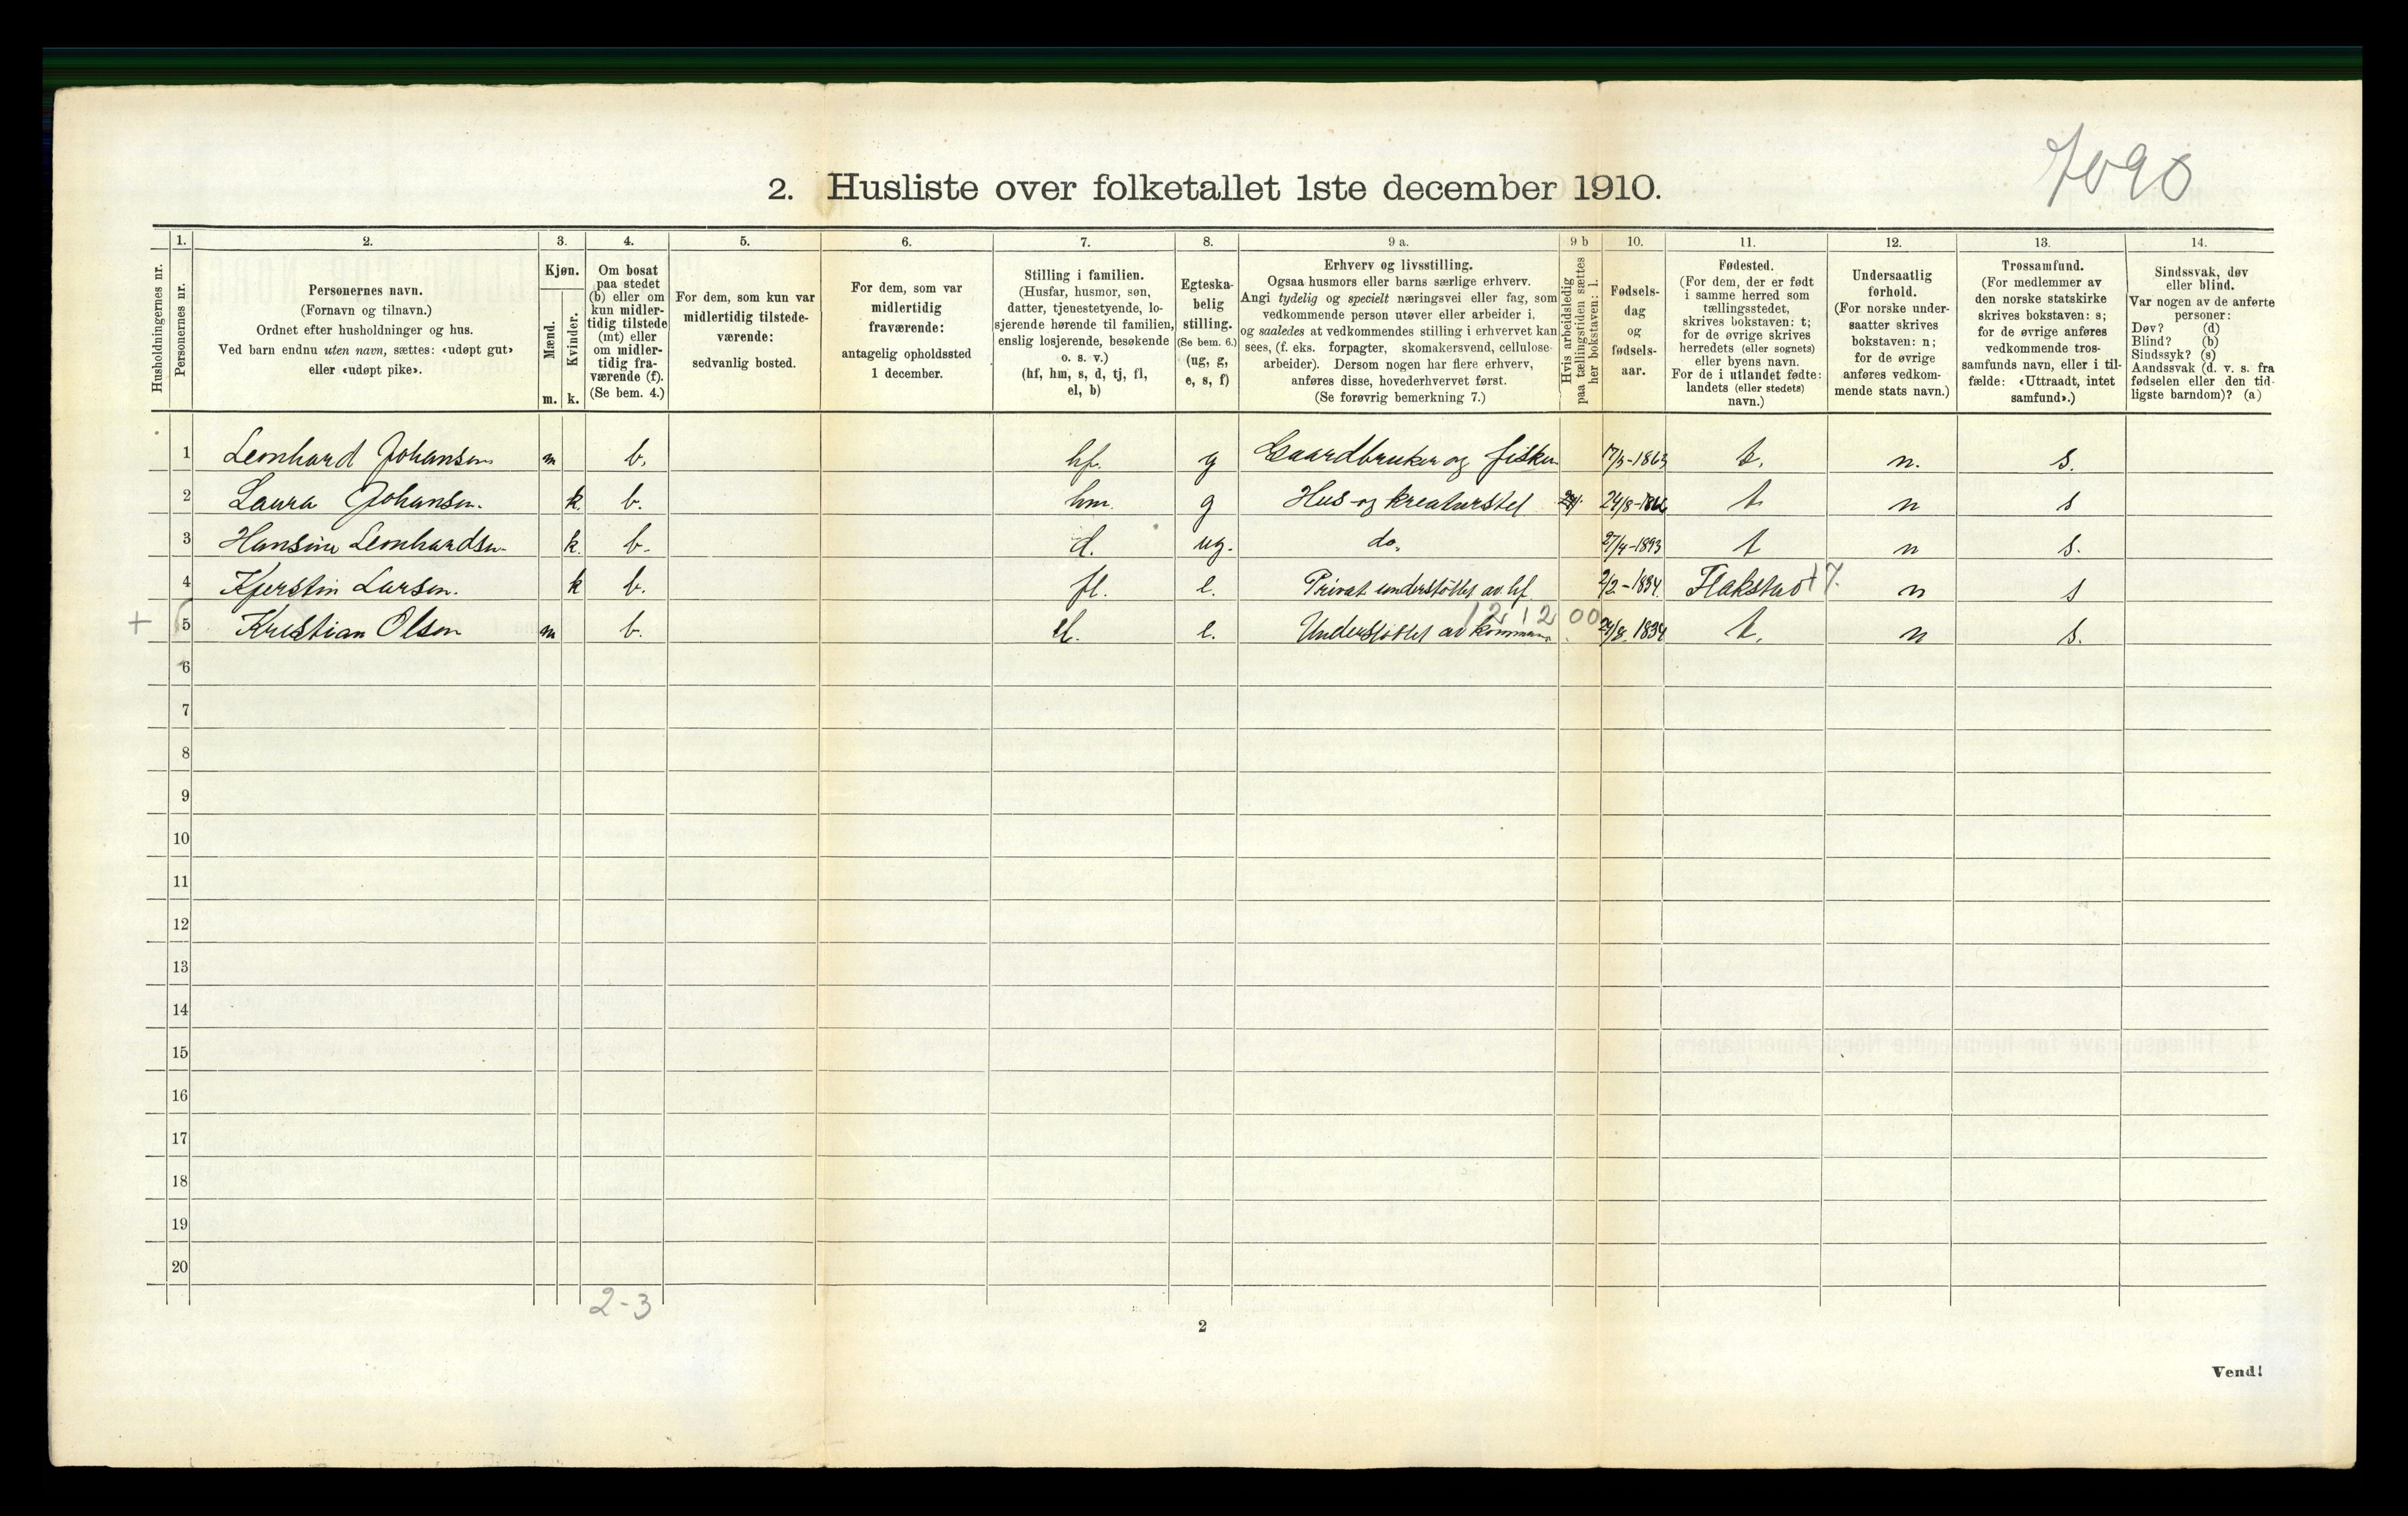 7090
2. Husliste over folketallet 1ste december 1910.
Husholdningernes nr.
1.
Personernes nr.
2.
Personernes navn.
(Fornavn og tilnavn.)
Ordnet efter husholdninger og hus.
Ved barn endnu uten navn, sættes: «udøpt gut»
eller «udøpt pike».
3.
Kjøn.
Mænd.
Kvinder.
m.
k.
4.
Om bosat
paa stedet
(b) eller om
kun midler-
tidig tilstede
(mt) eller
om midler-
tidig fra-
værende (f).
(Se bem. 4.)
5.
For dem, som kun var
midlertidig tilstede-
værende:
sedvanlig bosted.
6.
For dem, som var
midlertidig
fraværende:
antagelig opholdssted
1 december.
7.
Stilling i familien.
(Husfar, husmor, søn,
datter, tjenestetyende, lo-
sjerende hørende til familien,
enslig losjerende, besøkende
o. s. v.)
(hf, hm, s, d, tj, fl,
el, b)
8.
Egteska-
belig
stilling.
(Se bem. 6.)
(ug, g,
e, s, f)
9 a.
Erhverv og livsstilling.
Ogsaa husmors eller barns særlige erhverv.
Angi tydelig og specielt næringsvei eller fag, som
vedkommende person utøver eller arbeider i,
og saaledes at vedkommendes stilling i erhvervet kan
sees, (f. eks. forpagter, skomakersvend, cellulose-
arbeider). Dersom nogen har flere erhverv,
anføres disse, hovederhvervet først.
(Se forøvrig bemerkning 7.)
9 b
Hvis arbeidsledig
paa tællingstiden sættes
her bokstaven: l.
10.
Fødsels-
dag
og
fødsels-
aar.
11.
Fødested.
(For dem, der er født
i samme herred som
tællingsstedet,
skrives bokstaven: t;
for de øvrige skrives
herredets (eller sognets)
eller byens navn.
For de i utlandet fødte:
landets (eller stedets)
navn.)
12.
Undersaatlig
forhold.
(For norske under-
saatter skrives
bokstaven: n;
for de øvrige
anføres vedkom-
mende stats navn.)
13.
Trossamfund.
(For medlemmer av
den norske statskirke
skrives bokstaven: s;
for de øvrige anføres
vedkommende tros-
samfunds navn, eller i til-
fælde: «Uttraadt, intet
samfund».)
14.
Sindssvak, døv
eller blind.
Var nogen av de anførte
personer:
Døv? (d)
Blind? (b)
Sindssyk? (s)
Aandssvak (d. v. s. fra
fødselen eller den tid-
ligste barndom)? (a)
1 Leonhard Johansen m b. hf. g Gaardbruker og fisker 17/5-1863 t. n. s.
2 Laura Johansen. k. b. hm. g Hus-og kreaturstel 24/8-1866 t. n s
3 Hansine Leonhardsen k. b. d. ug. do. 27/4-1893 t n s.
4 Kjerstin Larsen. k b. fl. e. Privat understöttet av hf 2/2-1834. Flakstad + 7. n s
+ 5 Kristian Olsen m b. el. e. Understöttet av kommunen 12 12 00 24/8. 1834 t. n s.
6
7
8
9
10
11
12
13
14
15
16
17
18
19
20
2-3
2
Vend!